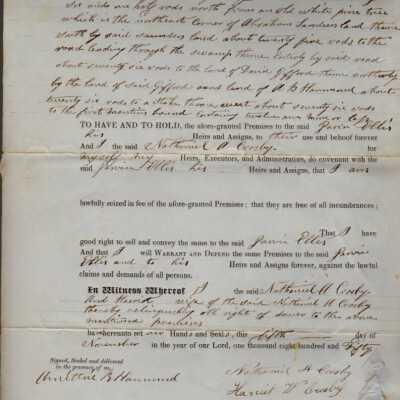 six rods one half rods north from an old white pine tree
which is the northeast corner of Abraham Sanders land thence
south by said Saunders land about twenty five rods to the
road leading through the swamp thence easterly by said road
about seventy six rods to the land of David Gifford thence northerly
by the land of said Gifford and land of A B Hammond about
twenty six rods to a stake thence west about seventy six rods
to the first mention bound containing twelve acres more or less
TO HAVE AND TO HOLD, the afore-granted Premises to the said Jarvis Ellis
his Heirs and Assigns, to their use and behoof forever
And I the said Nathaniel A Crosby for
myself my Heirs, Executors, and Administrators, do covenant with the
said Jarvis Ellis his Heirs and Assigns, that I am
lawfully seized in fee of the afore-granted Premises; that they are free of all incumbrances;
That I have
good right to sell and convey the same to the said Jarvis Ellis
And that I will WARRANT AND DEFEND the same Premises to the said Jarvis
Ellis and to his Heirs and Assigns forever, against the lawful
claims and demands of all persons.
In Witness Whereof I the said Nathaniel A Crosby
And Harriet wife of the said Nathaniel A Crosby
thereby relinquishing all right of dower to the above
mentioned premises
have hereunto set our Hands and Seals, this fifth day of
November in the year of our Lord, one thousand eight hundred and fifty
Signed, Sealed and delivered
in the presence of us,
B Hammond
Nathaniel A Crosby
Harriet W Crosby